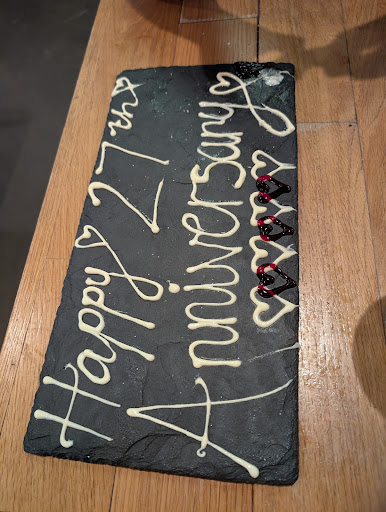 Happy 27 yrs
Anniversary